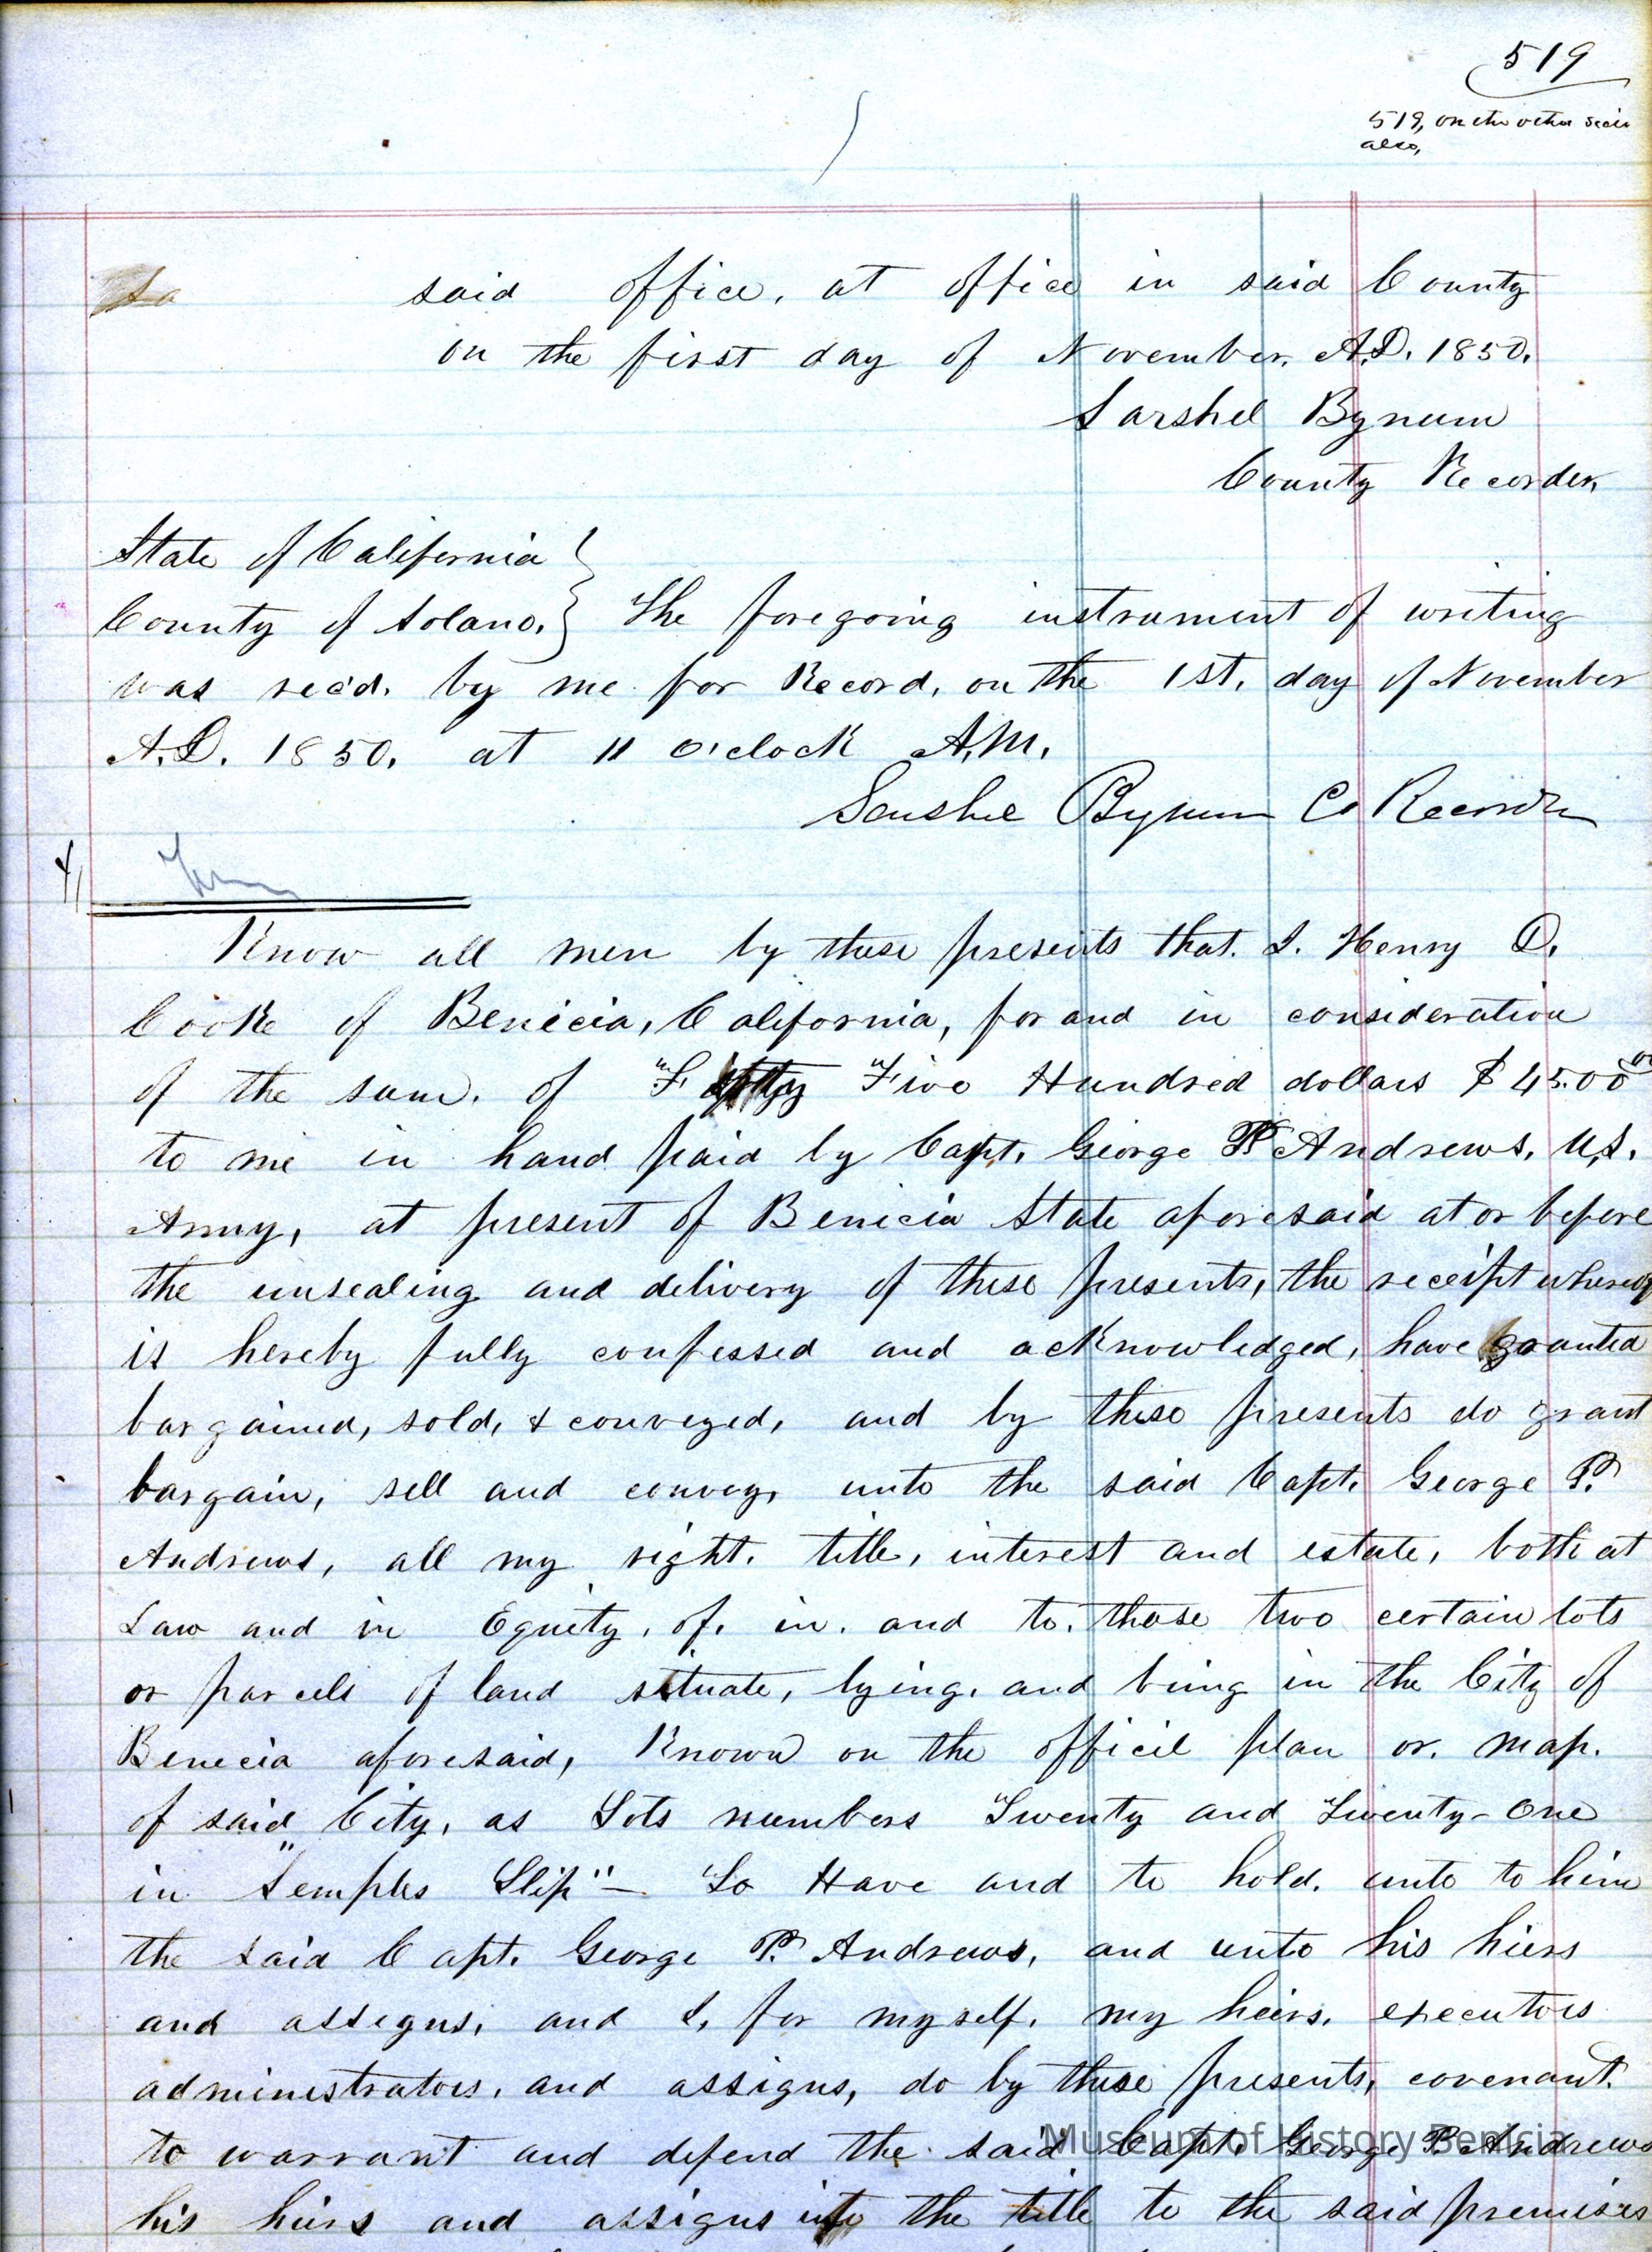 519
519, on the other side
also,
said office, at office in said County
on the first day of November, A.D. 1850.
Larshel Bynum
County Recorder,
State of California
County of Solano. The foregoing instrument of writing
was rec'd. by me for Record, on the 1st. day of November
A.D. 1850, at 11 O'clock A.M.
Bynum Co Recorder
Know all men by these presents that. I. Henry D.
Cooke of Benicia, California, for and in consideration
of the sum. of Five Hundred dollars $ 4500 00
to me in hand paid by Capt. George P Andrews, U.S.
Army, at present of Benicia State aforesaid at or before
the unsealing and delivery of these presents, the receipt whereof
is hereby fully confessed and acknowledged, have granted
bargained, sold, & conveyed, and by these presents do grant
bargain, sell and convey, unto the said Capt. George P.
Andrews, all my right. title, interest and estate, both at
Law and in Equity, of. in. and to. those two certain lots
or parcels of land situate, lying, and being in the City of
Benecia aforesaid, Known on the officil plan or. map.
of said City, as Lots numbers Twenty and Twenty-One
in "Semples Slip" — To Have and to hold. unto to him
the said Capt. George P. Andrews, and unto his hiers
and assigns, and I, for myself, my heirs. executors
administrators, and assigns, do by these presents, covenant.
to warrant and defend the said Capt. George P. Andrews
his hiers and assigns the title to the said premises
Museum of History Benicia